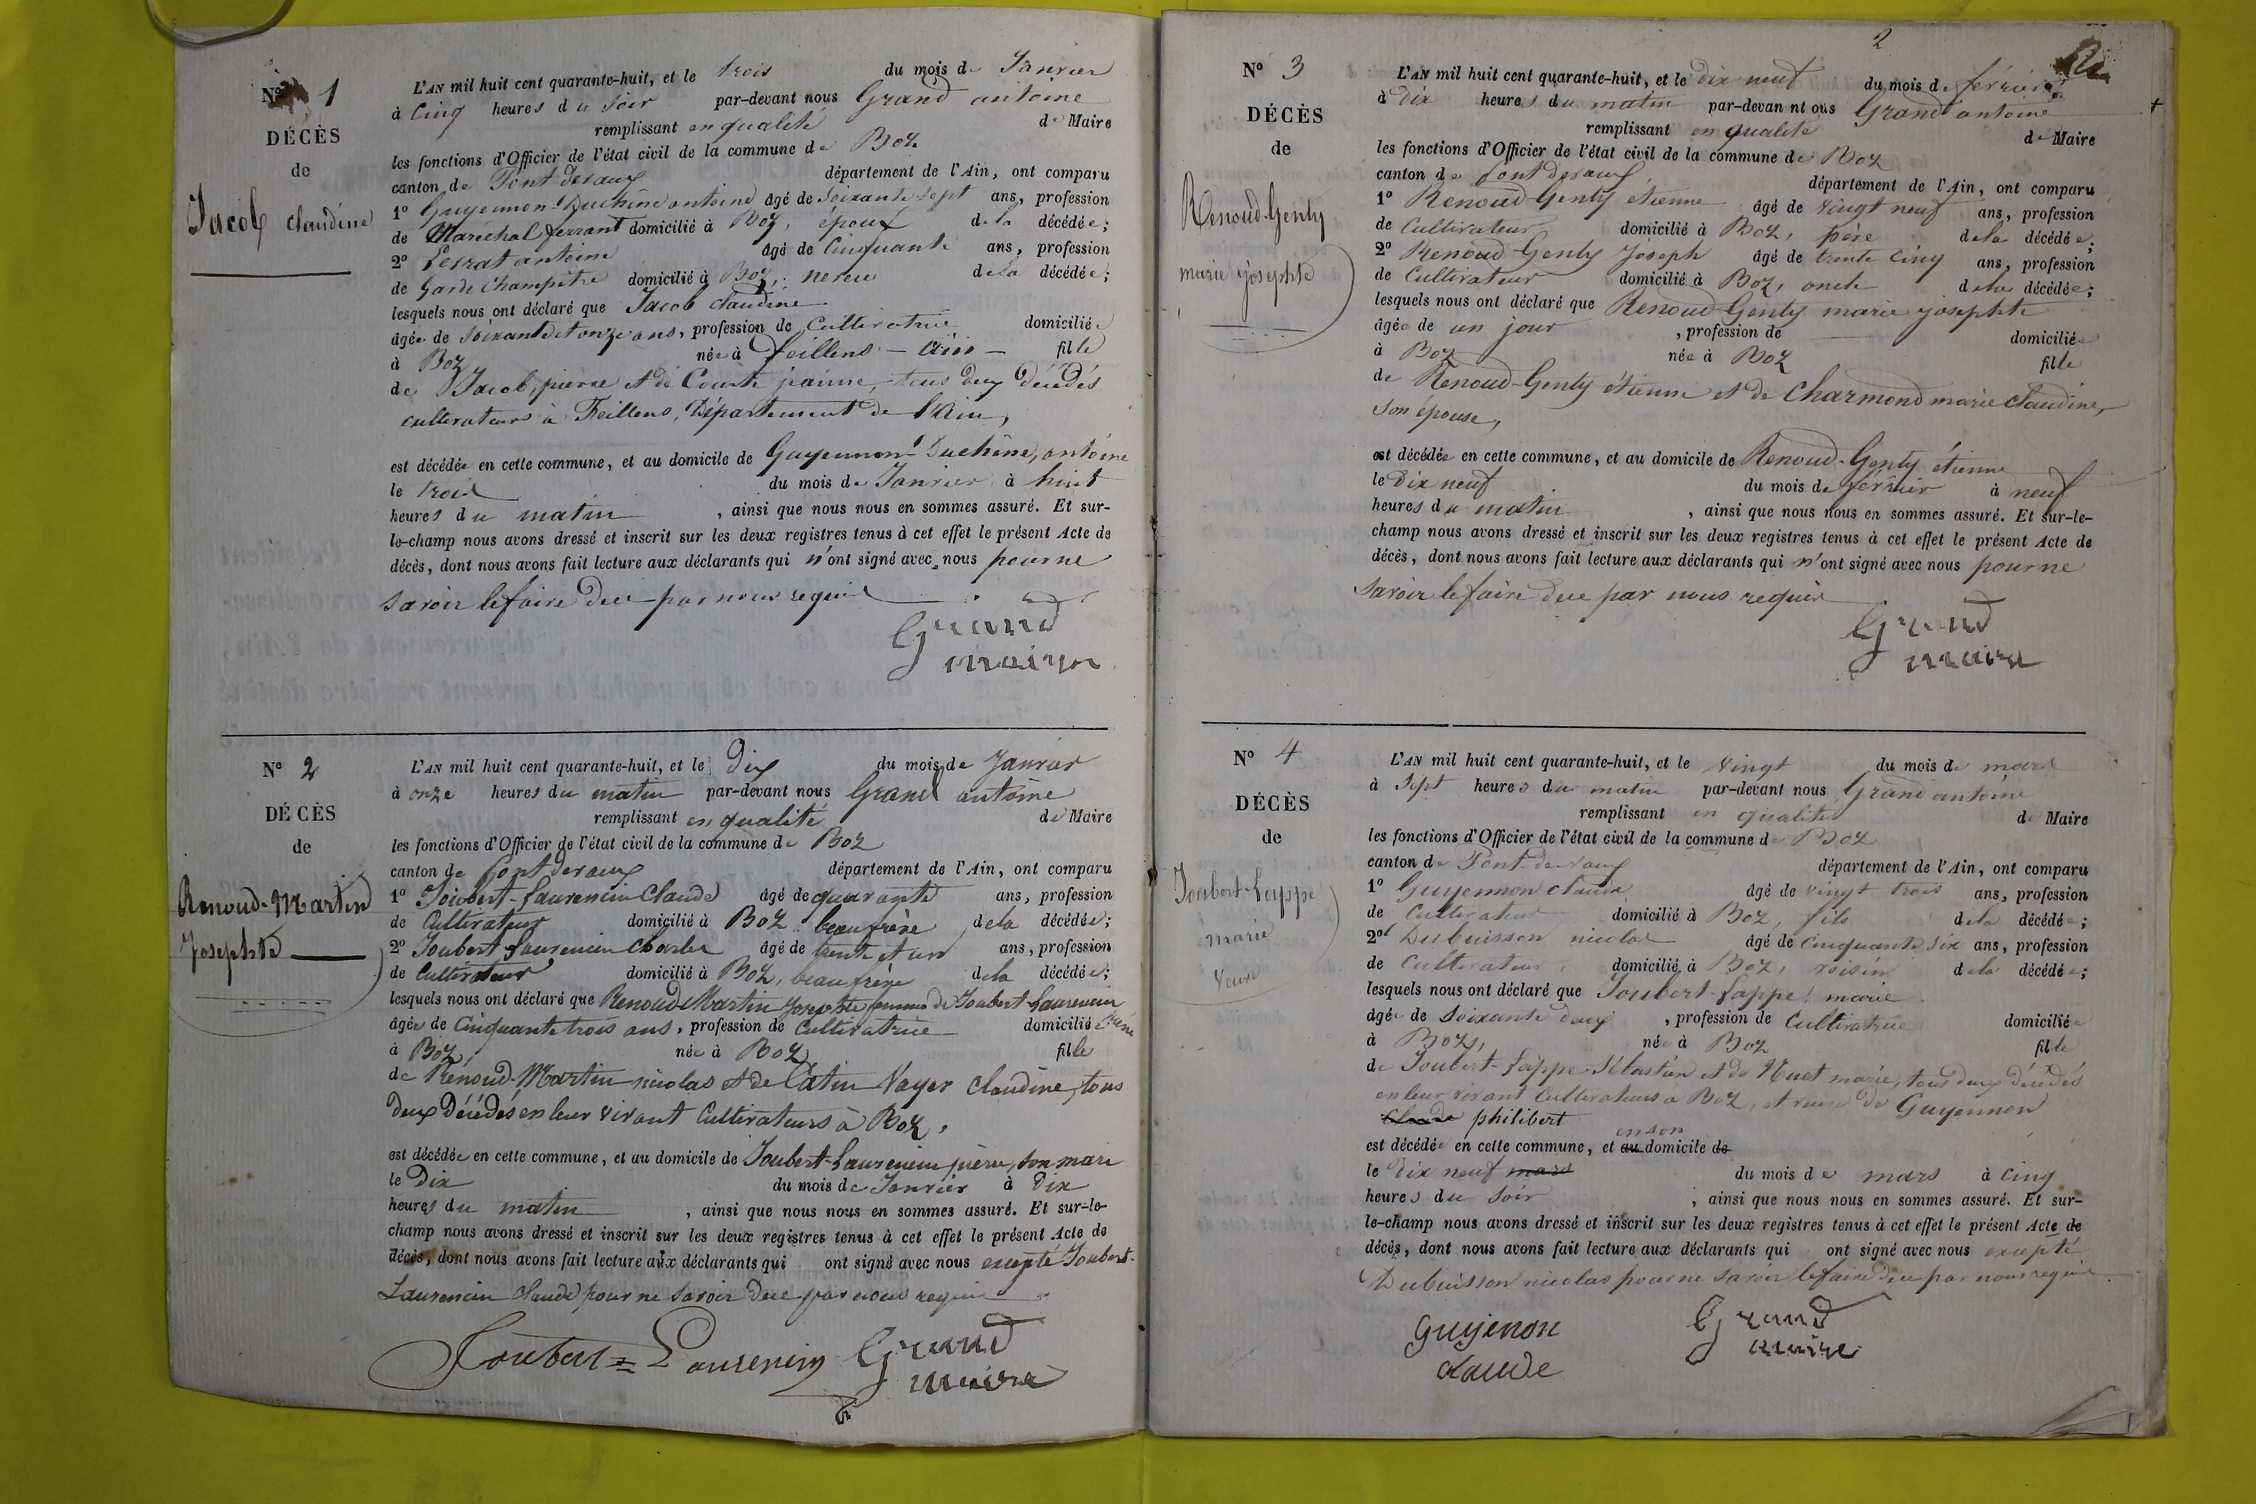 N° 1
DÉCÈS
de
Jacob Claudine
L'AN mil huit cent quarante-huit, et le trois du mois de Janvier
à Cinq heures du soir par-devant nous Grand antoine
remplissant en qualité de Maire
les fonctions d'Officier de l'état civil de la commune de Boz
canton de Pont devaux département de l'Ain, ont comparu
1° Guyennon-Duchêne antoine âgé de Soixante sept ans, profession
de Maréchal ferrant domicilié à Boz, époux de la décédée;
2° antoine âgé de Cinquante ans, profession
de Garde Champêtre domicilié à Boz, neveu de la décédée;
lesquels nous ont déclaré que Jacob claudine
âgée de Soixante et onze ans, profession de Cultivatrice domiciliée
à Boz née à feillens - Ain - fille
de Jacob, pierre et de jeanne, tous deux Décédés
cultivateurs à Feillens, Département de l'Ain,
est décédée en cette commune, et au domicile de Guyennon-Duchêne, antoine
le trois du mois de Janvier à huit
heures du matin, ainsi que nous nous en sommes assuré. Et sur-
le-champ nous avons dressé et inscrit sur les deux registres tenus à cet effet le présent Acte de
décès, dont nous avons fait lecture aux déclarants qui n'ont signé avec nous pour ne
savoir le faire due par nous requis
Grand
maire
N° 2
DÉCÈS
de
Renoud-Martin
Josephte
L'AN mil huit cent quarante-huit, et le Dix du mois de Janvier
à onze heures du matin par-devant nous Grand antoine
remplissant en qualité de Maire
les fonctions d'Officier de l'état civil de la commune de Boz
canton de Pont devaux département de l'Ain, ont comparu
1° Joubert-Laurencin Claude âgé de quarante ans, profession
de Cultivateur domicilié à Boz beau frère de la décédée;
2° Joubert Laurencin Charles âgé de trente et un ans, profession
de Cultivateur domicilié à Boz, beau frère de la décédée;
lesquels nous ont déclaré que Renoud-Martin Josephte femme de Joubert Laurencin
âgée de Cinquante trois ans, profession de Cultivatrice domiciliée pierre
à Boz, née à Boz fille
de Renoud-Martin nicolas et de Catin Vayer Claudine, tous
deux Décédés en leur vivant Cultivateurs à Boz,
est décédée en cette commune, et au domicile de Joubert-Laurencin pierre, son mari
le Dix du mois de Janvier à Dix
heures du matin, ainsi que nous nous en sommes assuré. Et sur-le-
champ nous avons dressé et inscrit sur les deux registres tenus à cet effet le présent Acte de
décès, dont nous avons fait lecture aux déclarants qui ont signé avec nous excepté Joubert-
Laurencin Claude pour ne savoir due par nous requis
Joubert = Laurencin Grand
maire
2
N° 3
DÉCÈS
de
Renoud-Genty
marie josephte
L'AN mil huit cent quarante-huit, et le dix neuf du mois de février
à dix heures du matin par-devan nt ous Grand antoine
remplissant en qualité de Maire
les fonctions d'Officier de l'état civil de la commune de Boz
canton de pont devaux département de l'Ain, ont comparu
1° Renoud-Genty étienne âgé de vingt neuf ans, profession
de Cultivateur domicilié à Boz, père de la décédée;
2° Renoud-Genty Joseph âgé de trente Cinq ans, profession
de Cultivateur domicilié à Boz, oncle de la décédée;
lesquels nous ont déclaré que Renoud-Genty marie josephte
âgée de un jour, profession de domiciliée
à Boz née à Boz fille
de Renoud-Genty étienne et de Charmond marie Claudine,
son épouse,
est décédée en cette commune, et au domicile de Renoud-Genty étienne
le dix neuf du mois de février à neuf
heures du matin, ainsi que nous nous en sommes assuré. Et sur-le-
champ nous avons dressé et inscrit sur les deux registres tenus à cet effet le présent Acte de
décès, dont nous avons fait lecture aux déclarants qui n'ont signé avec nous pour ne
savoir le faire due par nous requis
Grand
maire
N° 4
DÉCÈS
de
Joubert-Lappe
marie
Veuve
L'AN mil huit cent quarante-huit, et le vingt du mois de mars
à Sept heures du matin par-devant nous Grand antoine
remplissant en qualité de Maire
les fonctions d'Officier de l'état civil de la commune de Boz
canton de Pont-de-vaux département de l'Ain, ont comparu
1° Guyennon claude âgé de vingt trois ans, profession
de Cultivateur domicilié à Boz, fils de la décédée;
2° Dubuisson nicolas âgé de Cinquante six ans, profession
de Cultivateur domicilié à Boz, voisin de la décédée;
lesquels nous ont déclaré que Joubert-Lappe marie
âgée de Soixante deux, profession de Cultivatrice domiciliée
à Boz, née à Boz fille
de Joubert-Lappe Sébastien et de Huet marie, tous deux décédés
en leur vivant Cultivateurs à Boz, et veuve de Guyennon
Claude philibert
est décédée en cette commune, et au en son domicile de
le dix neuf mars du mois de mars à Cinq
heures du soir, ainsi que nous nous en sommes assuré. Et sur-
le-champ nous avons dressé et inscrit sur les deux registres tenus à cet effet le présent Acte de
décès, dont nous avons fait lecture aux déclarants qui ont signé avec nous excepté
Dubuisson nicolas pour ne savoir le faire due par nous requis
guyenon Grand
claude maire